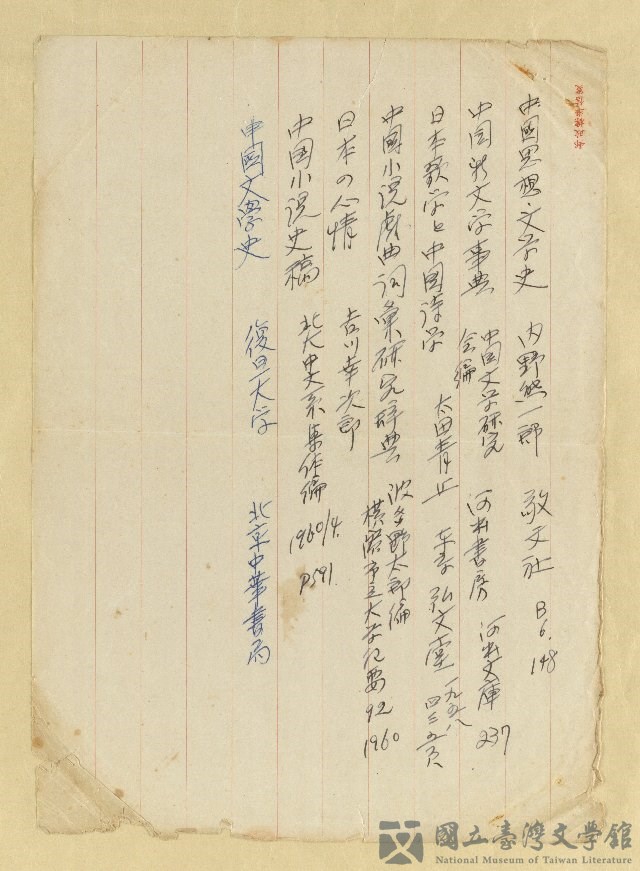 中國思想・文学史 内野熊一郎 敬文社 B6. 148
中国新文学事典 中国文学研究会編 河出書房 河出文庫 237
日本歌学と中国詩学 太田青丘 東京 弘文堂 一九五八 四三五頁
中國小説戲曲詞彙研究辞典 波多野太郎編 横浜市立大学紀要 92 1960
日本の心情 吉川幸次郎
中国小説史稿 北大中文系集体編 1960/4. P591.
中國文學史 復旦大学 北京中華書局
國立臺灣文學館
National Museum of Taiwan Literature